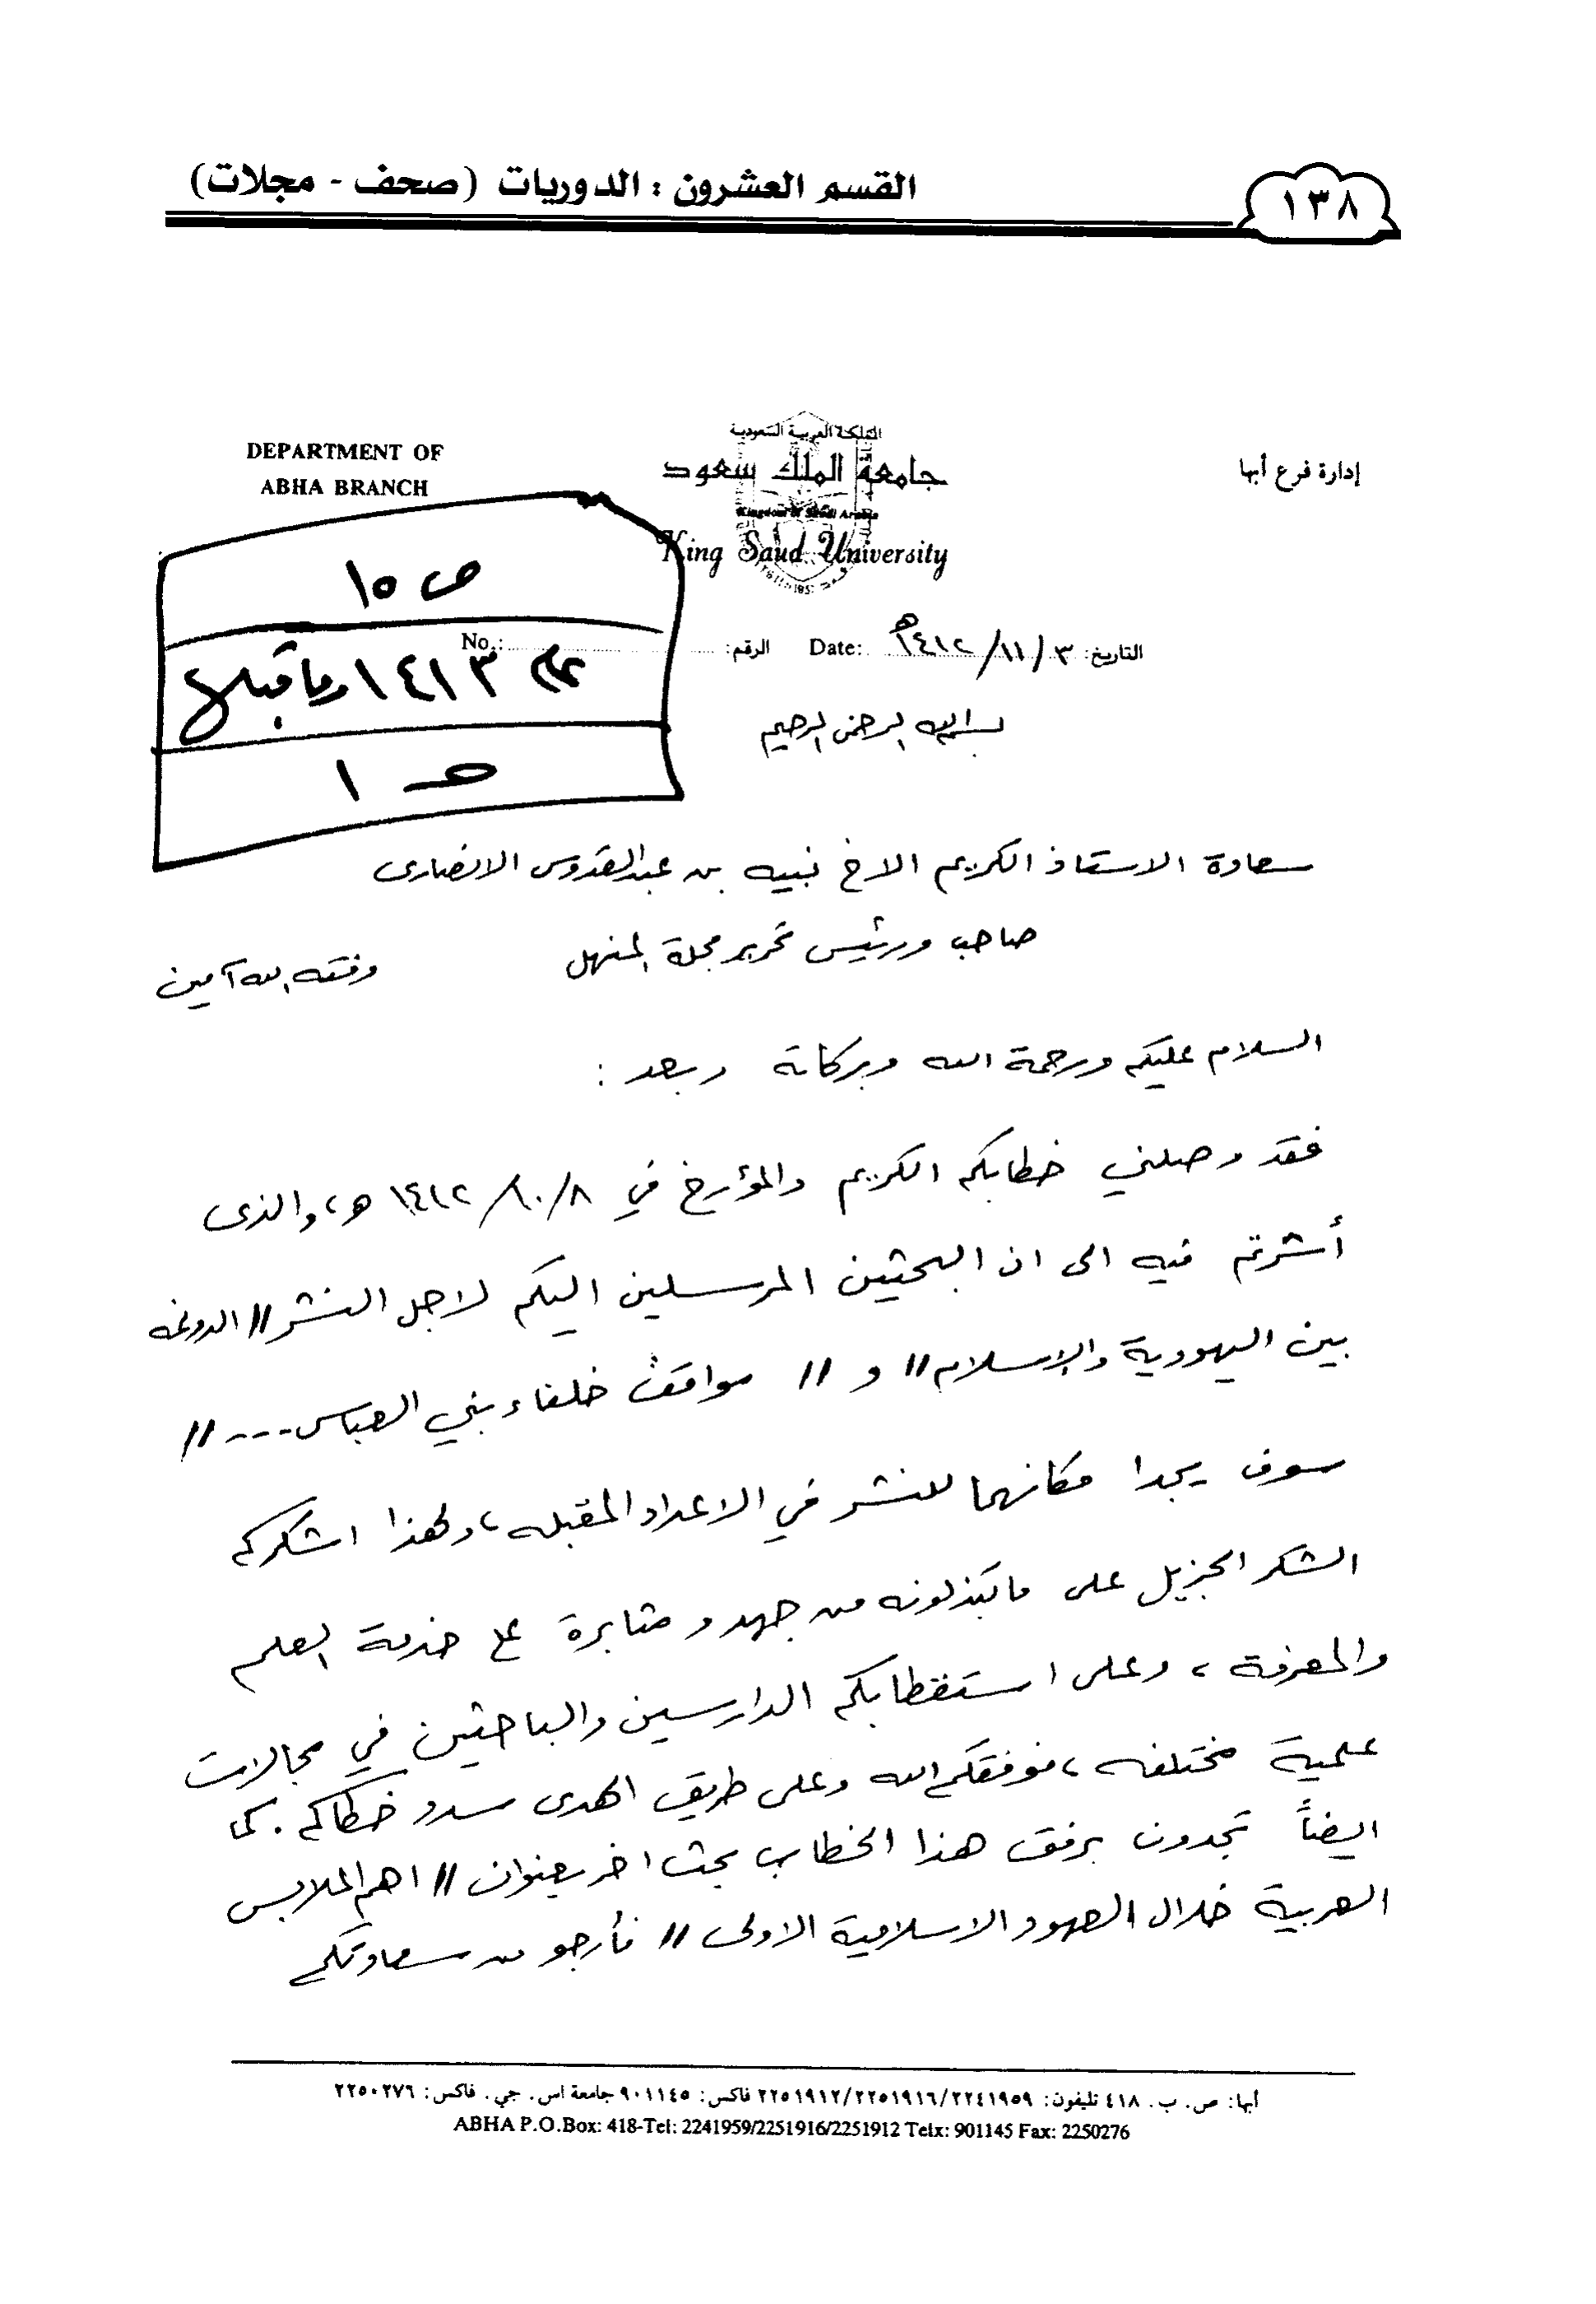 ١٣٨
القسم العشرون : الدوريات (صحف - مجلات)
إدارة فرع أبها
المملكة العربية السعودية
جامعة الملك سعود
Kingdom of Saudi Arabia
King Saud University
DEPARTMENT OF
ABHA BRANCH
التاريخ: ٣ / ١١ / ١٤١٢هـ Date: الرقم: No.:
ص ١٥
عام ١٤١٣ وما قبلها
هـ ١
بسم الله الرحمن الرحيم
سعادة الاستاذ الكريم الاخ نبيه بن عبدالقدوس الانصارى
صاحب ورئيس تحرير مجلة المنهل وفقه الله آمين
السلام عليكم ورحمة الله وبركاته وبعد :
فقد وصلني خطابكم الكريم والمؤرخ في ٨/ ١٠/ ١٤١٢ هـ، والذى
أشرتم فيه الى ان البحثين المرسلين اليكم لاجل النشر // الدونمه
بين اليهودية والإسلام // و // مواقف خلفاء بني العباس --- //
سوف يجدا مكانهما للنشر في الاعداد المقبله، ولهذا اشكركم
الشكر الجزيل على ما تبذلونه من جهد و مثابرة على خدمة العلم
والمعرفة ، وعلى استقطابكم الدارسين والباحثين في مجالات
علمية مختلفه ، فوفقكم الله وعلى طريق الهدى سدد خطاكم . كما
ايضاً تجدون برفق هذا الخطاب بحث اخر بعنوان // اهم الملابس
العربية خلال العهود الاسلامية الاولى // فأرجو من سعادتكم
أبها: ص. ب. ٤١٨ تليفون: ٢٢٤١٩٥٩/٢٢٥١٩١٦/٢٢٥١٩١٢ فاكس: ٩٠١١٤٥ جامعة اس. جي. فاكس: ٢٢٥٠٢٧٦
ABHA P.O.Box: 418-Tel: 2241959/2251916/2251912 Telx: 901145 Fax: 2250276